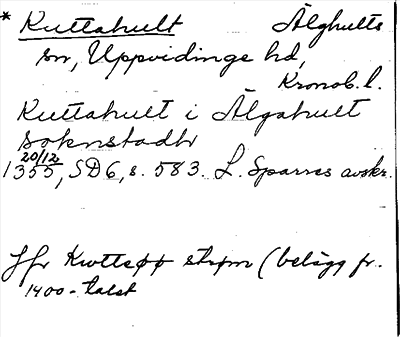 * Kuttahult Älghults
sn, Uppvidinge hd,
Kronob. l.
Kuttahult i Ælgahult
soknstadh
20/12
1355, SD 6, s. 583. L. Sparres avskr.
Jfr Kwttsøø strøm (belägg fr.
1400-talet